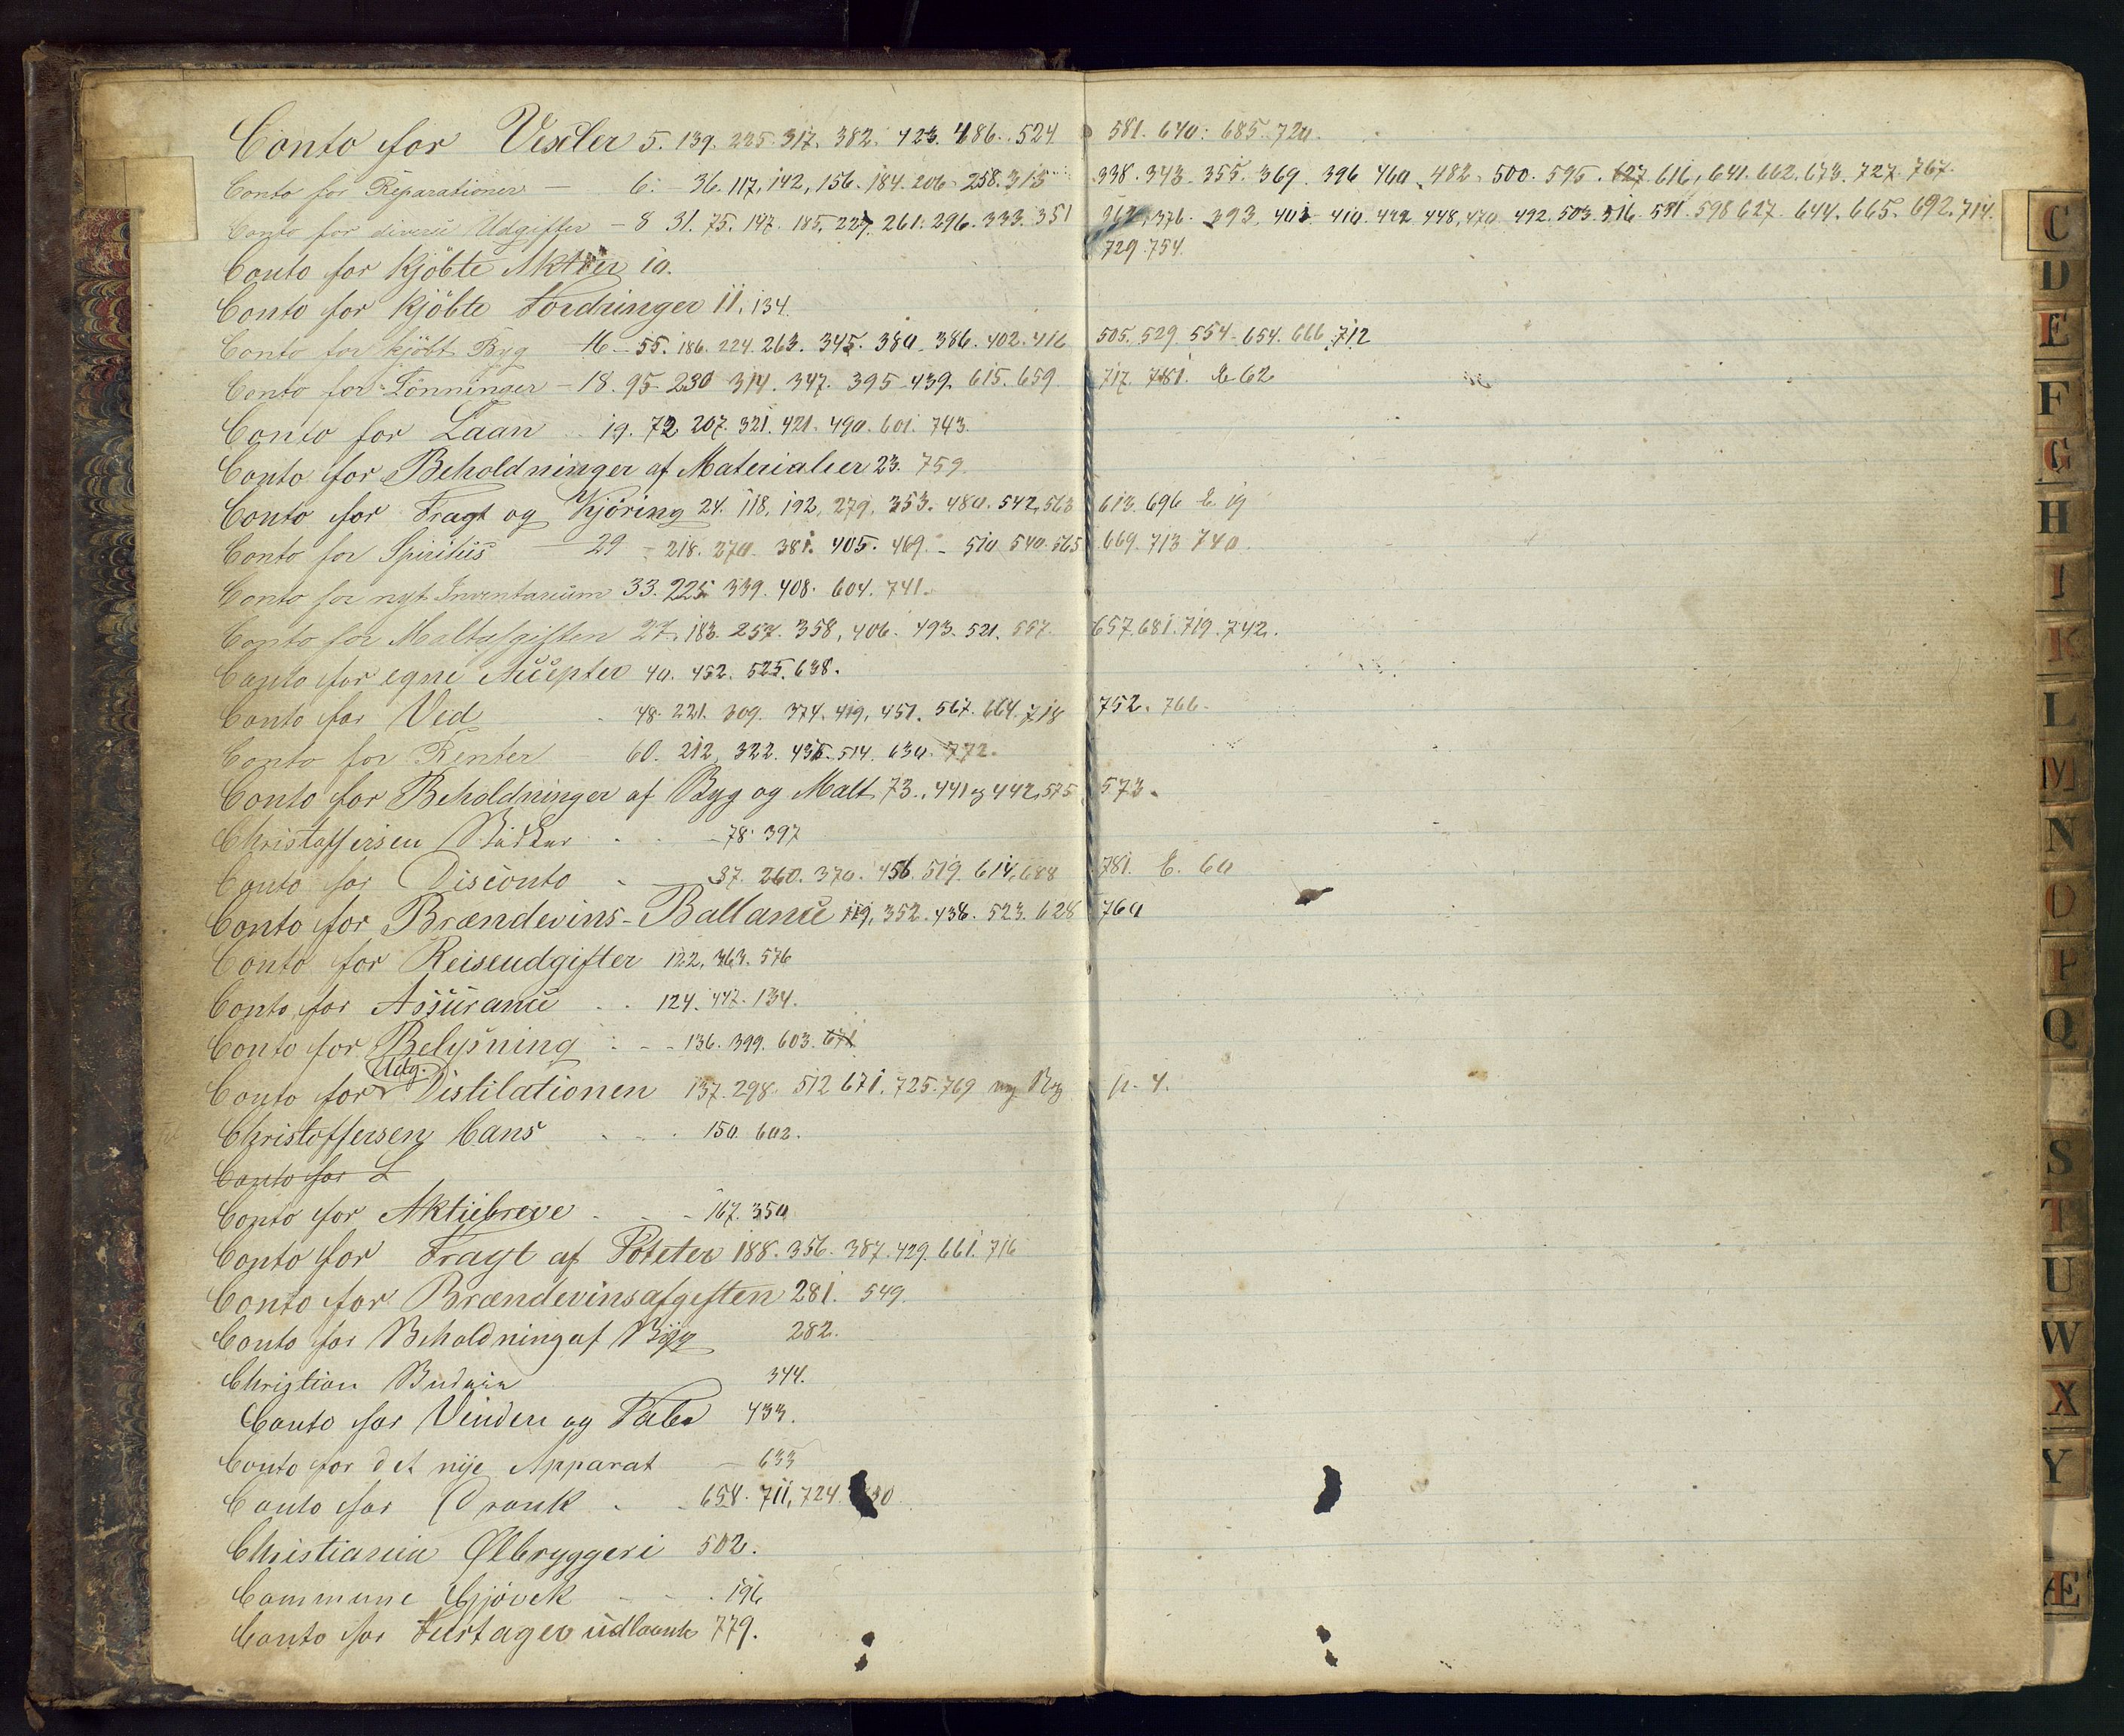 Conto for Vexler 5. 139. 225. 317. 382. 423. 486. 524 581. 640. 685. 720.
Conto for Reparationer — 6. 36. 117, 142, 156. 184. 206. 258. 315 338. 343. 355. 369. 396 460. 482. 500. 595. 616, 641. 662. 673. 727. 767.
Conto for diverse Udgifter — 8 31. 75. 147. 185. 227. 261. 296. 333. 351 376. 393. 403 410. 442 448, 470 492. 503. 516. 531. 598 627. 644. 665. 692. 714.
729. 754.
Conto for kjöbte Aktier 10.
Conto for kjöbte Fordringer 11. 134.
Conto for kjöbt Byg 16 — 55. 186. 224. 263. 345. 380. 386. 402. 416 505. 529. 554. 654. 666. 712
Conto for Lönninger — 18. 95. 230 314. 347. 395. 439. 615. 659. 717. 781. & 62
Conto for Laan 19. 72. 207. 321. 421. 490. 601. 743.
Conto for Beholdninger af Materialier 23. 759.
Conto for Fragt og Kjöring 24. 118, 192, 279, 353. 480. 542, 563 613. 696 & 19
Conto for Spiritus — 29 — 218. 270. 381. 405. 469. — 510 540. 565 669. 713 740.
Conto for nyt Inventarium 33. 225 339. 408. 604. 741.
Conto for Maltafgiften 27. 183. 257. 358, 406. 493. 521. 557. 657. 681. 719. 742.
Conto for egne Accepter 40. 452. 525. 638.
Conto for Ved 48. 221. 309. 374. 419, 451. 567. 664. 718 752. 766.
Conto for Renter — 60. 212, 322. 435. 514. 630. 772.
Conto for Beholdninger af Byg og Malt 73. 441 og 442, 575 573.
Christoffersen 78. 397
Conto for Disconto 87. 260. 370. 456. 519. 614, 688 781. & 60
Conto for Brændevins-Ballance 119, 352. 436. 523. 628 760
Conto for Reiseudgifter 122, 363. 576
Conto for Assurance 124. 447. 134.
Conto for Belysning 136. 399. 603. 671
Udg.
Conto for Distilationen 137. 298. 512 671. 725. 769 ny Bog p. 4.
Christoffersen Hans 150. 602.
Conto for L
Conto for Aktiebreve 167. 350
Conto for Fragt af Poteter 188. 356. 387. 429. 661. 716
Conto for Brændevinsafgiften 281. 549.
Conto for Beholdning af Byg 282.
Christian 344.
Conto for Vindere og Tabe 433.
Conto for det nije Apparat — 633
Conto for Drank 658. 711, 724.
Christiania Ølbryggeri 502.
Commune Gjövik 196
Conto for Fustager udlaante 779.
C
D
E
F
G
H
I
K
L
M
N
O
P
Q
S
T
U
W
X
Y
Æ